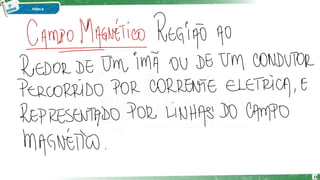 FÍSICA
CAMPO MAGNÉTICO REGIÃO AO
REDOR DE UM IMÃ OU DE UM CONDUTOR
PERCORRIDO POR CORRENTE ELETRICA, E
REPRESENTADO POR LINHAS DO CAMPO
MAGNÉTICO.